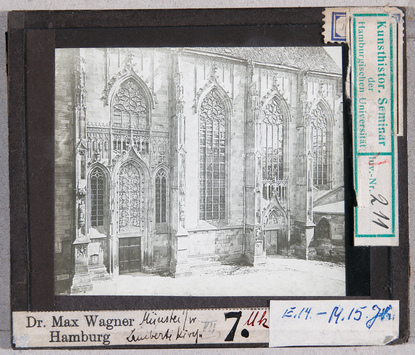 Kunsthistor. Seminar
der
Hamburgischen Universität
Inv.-Nr. 211
Dr. Max Wagner
Hamburg
Münster i/W
Lamberti Kirche
VII
7. Mk
E.14. – 14.15. Jh.